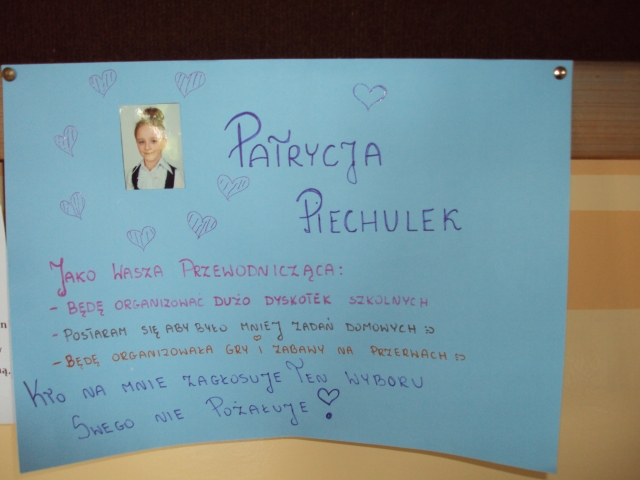 PATRYCJA
PIECHULEK
JAKO WASZA PRZEWODNICZĄCA:
- BĘDĘ ORGANIZOWAĆ DUŻO DYSKOTEK SZKOLNYCH
- POSTARAM SIĘ ABY BYŁO MNIEJ ZADAŃ DOMOWYCH :)
- BĘDĘ ORGANIZOWAŁA GRY I ZABAWY NA PRZERWACH :)
KTO NA MNIE ZAGŁOSUJE TEN WYBORU
SWEGO NIE POŻAŁUJE!